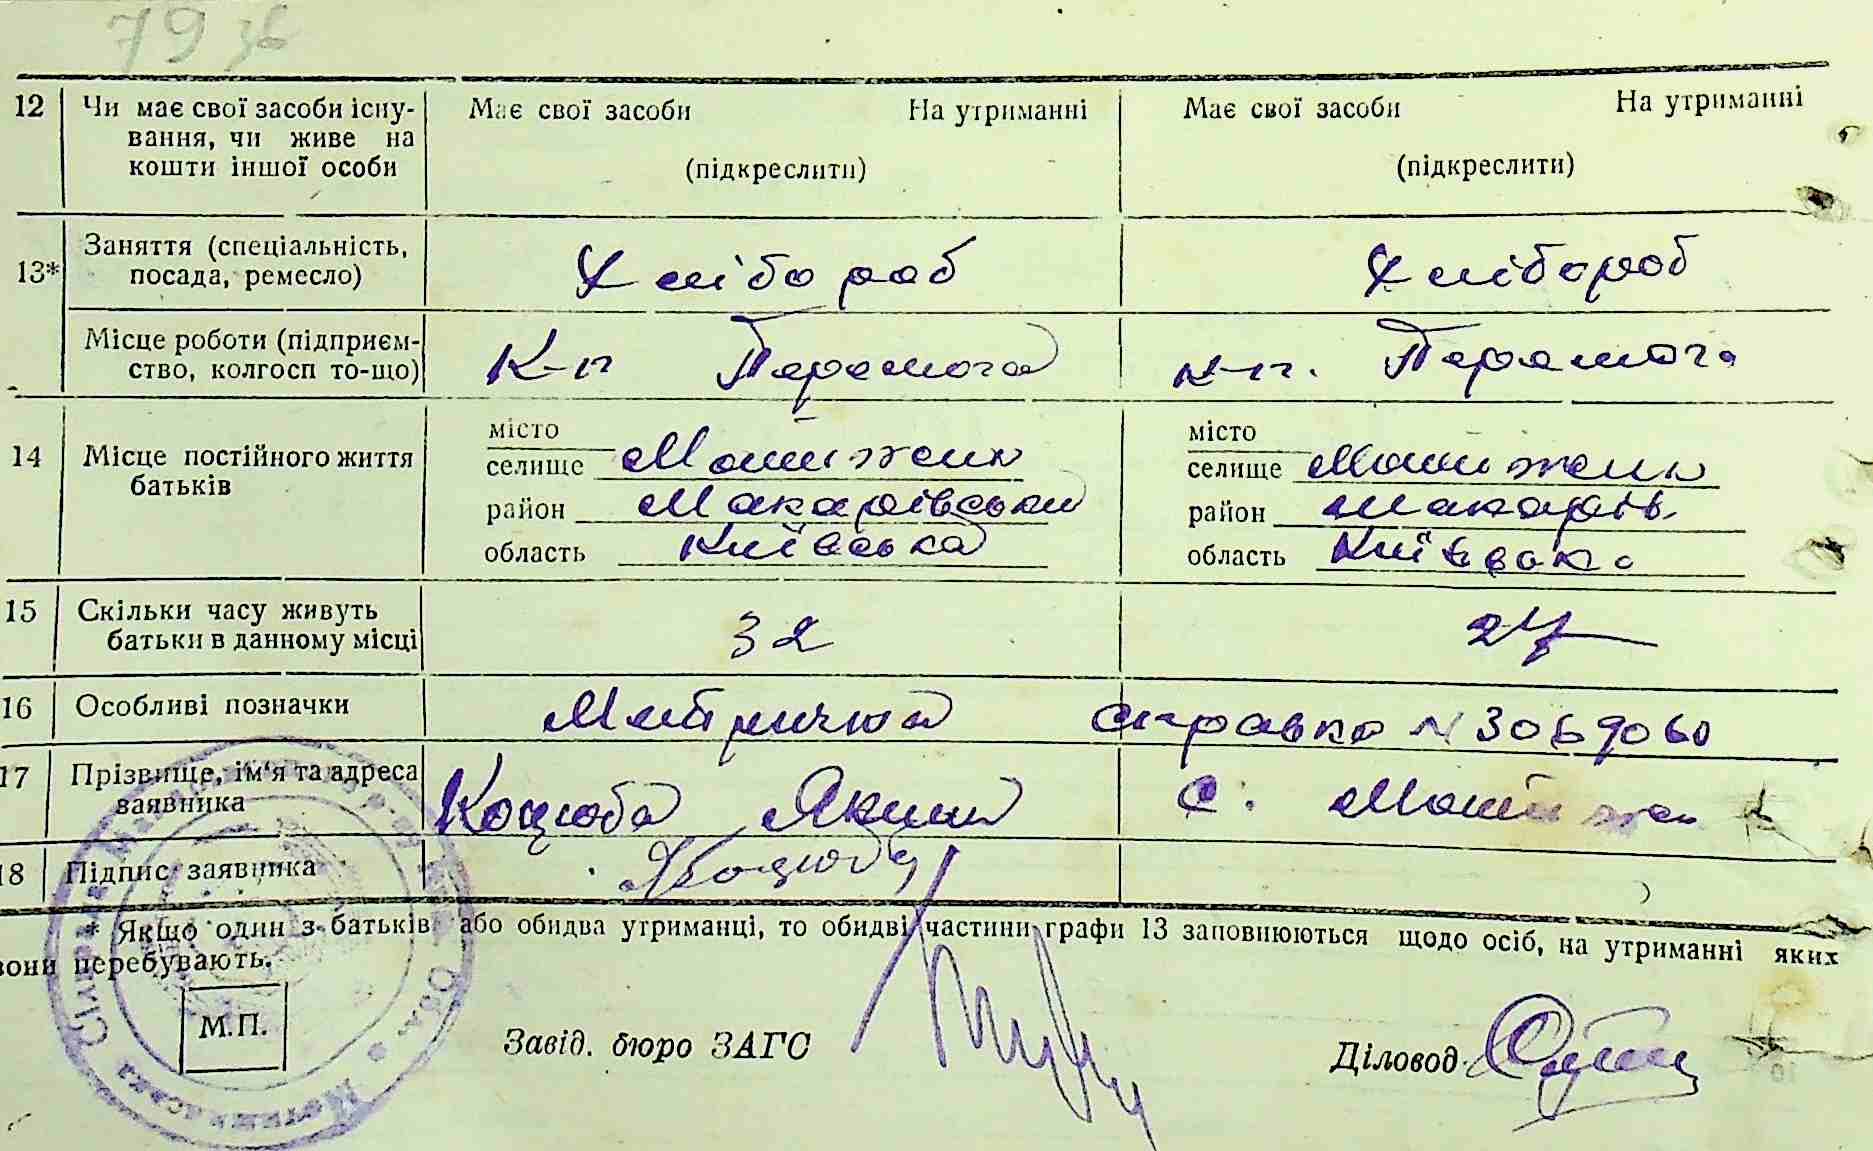 79 зв
12 Чи має свої засоби існу- Має свої засоби На утриманні Має свої засоби На утриманні
вання, чи живе на
кошти іншої особи (підкреслити) (підкреслити)
13* Заняття (спеціальність,
посада, ремесло) Хлібороб Хлібороб
Місце роботи (підприєм-
ство, колгосп то-що) К-п Перемога к-п. Перемога
14 Місце постійного життя
батьків
місто місто
селище Мотижин селище Мотижин
район Макарівський район Макарів.
область Київська область Київська
15 Скільки часу живуть
батьки в данному місці 32 27
16 Особливі позначки Метрична справка № 3069060
17 Прізвище, ім'я та адреса
заявника Коцюба Яким с. Мотижин
18 Підпис заявника Коцюба
* Якщо один з батьків або обидва утриманці, то обидві частини графи 13 заповнюються щодо осіб, на утриманні яких
вони перебувають.
М.П. Завід. бюро ЗАГС Діловод